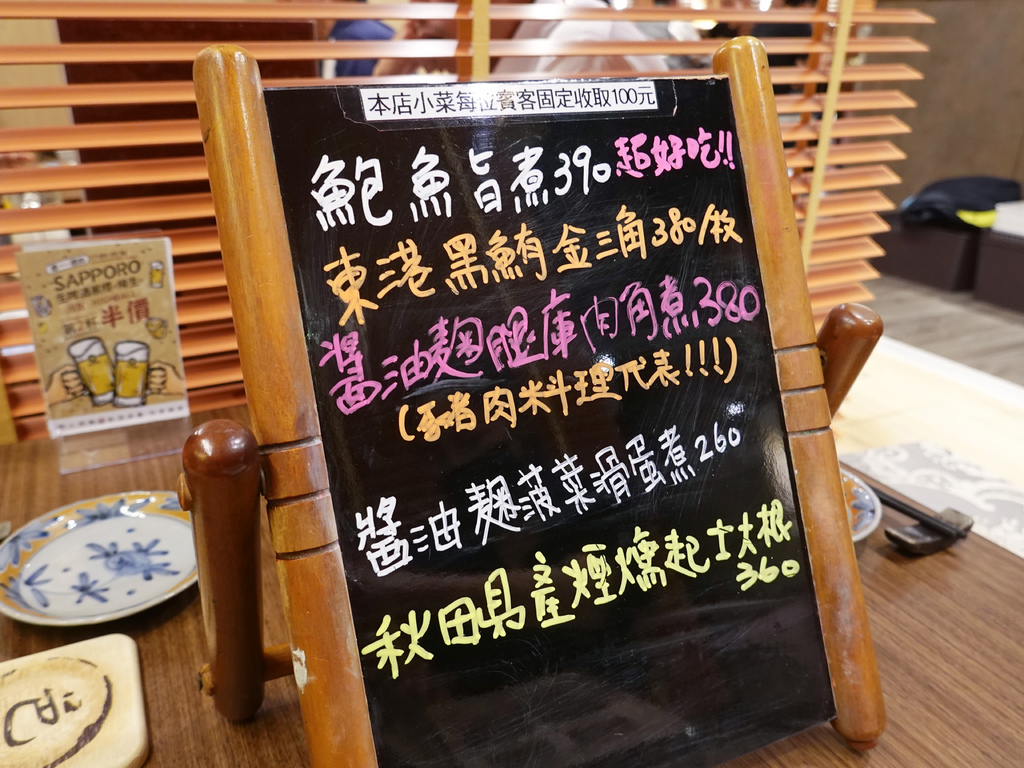 本店小菜每位賓客固定收取100元
鮑魚旨煮390 超好吃!!
東港黑鮪金三角380/枚
醬油麴腿庫肉角煮380
(豬肉料理代表!!!)
醬油麴菠菜滑蛋煮260
秋田県産煙燻起士大根
360
SAPPORO
第2杯半價